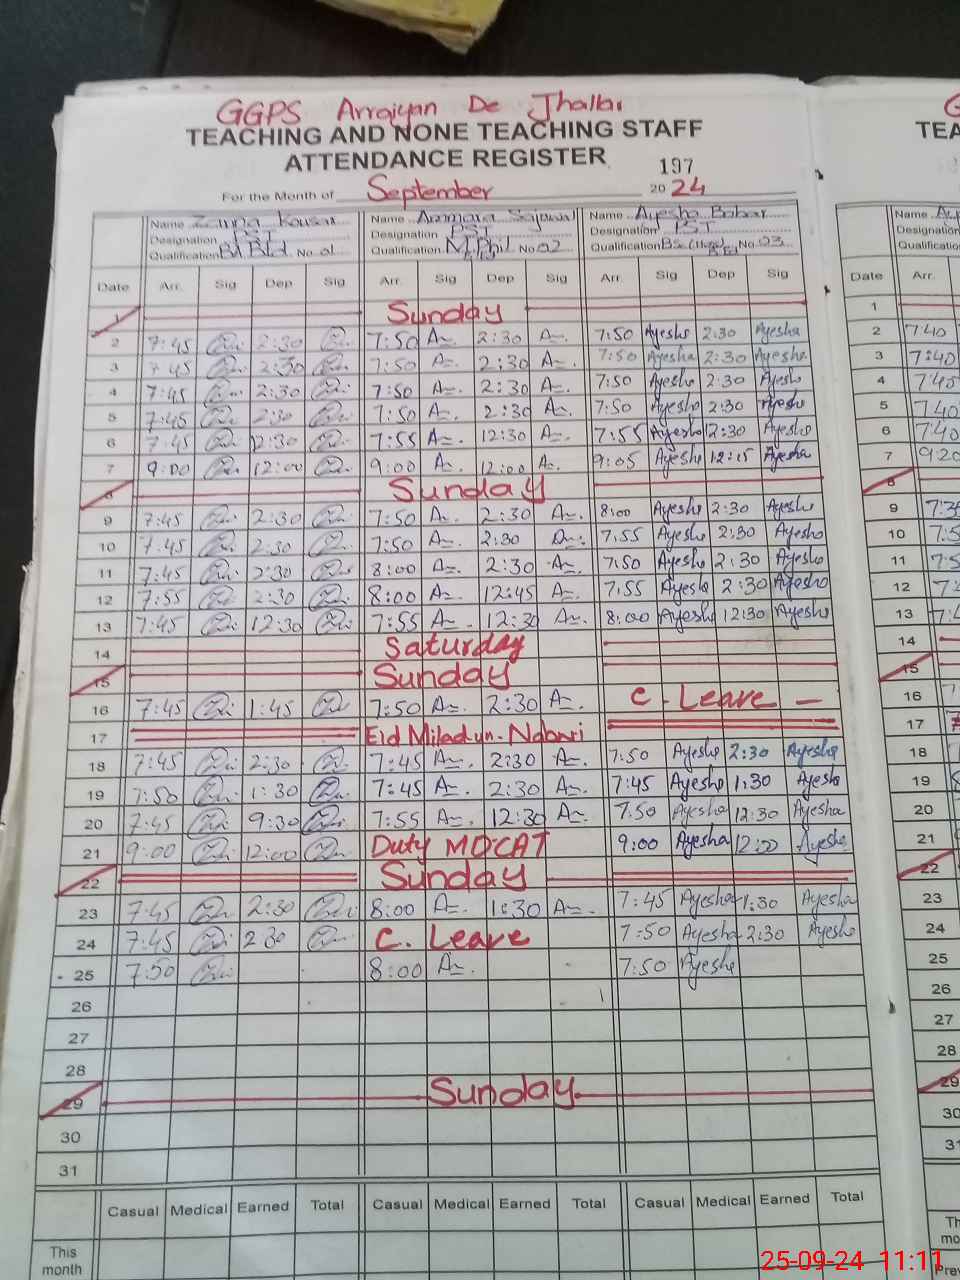 GGPS Arraiyan De Jhalar
TEACHING AND NONE TEACHING STAFF
ATTENDANCE REGISTER 197
For the Month of September 2024
Name Name Ammara Name Ayesha Babar
Designation PST Designation PST Designation PST
Qualification No. 01 Qualification M.Phil No 02 Qualification No. 03
Date Arr. Sig Dep Sig Arr. Sig Dep Sig Arr. Sig Dep Sig
1 Sunday
2 7:45 2:30 7:50 A 2:30 A 7:50 Ayesha 2:30 Ayesha
3 7:45 2:30 7:50 A 2:30 A 7:50 Ayesha 2:30 Ayesha
4 7:45 2:30 7:50 A 2:30 A 7:50 Ayesha 2:30 Ayesha
5 7:45 2:30 7:50 A 2:30 A 7:50 Ayesha 2:30 Ayesha
6 7:45 12:30 7:55 A 12:30 A 7:55 Ayesha 12:30 Ayesha
7 9:00 12:00 9:00 A 12:00 A 9:05 Ayesha 12:15 Ayesha
8 Sunday
9 7:45 2:30 7:50 A 2:30 A 8:00 Ayesha 2:30 Ayesha
10 7:45 2:30 7:50 A 2:30 A 7:55 Ayesha 2:30 Ayesha
11 7:45 2:30 8:00 A 2:30 A 7:50 Ayesha 2:30 Ayesha
12 7:55 2:30 8:00 A 12:45 A 7:55 Ayesha 2:30 Ayesha
13 7:45 12:30 7:55 A 12:30 A 8:00 Ayesha 12:30 Ayesha
14 Saturday
15 Sunday
16 7:45 1:45 7:50 A 2:30 A C. Leave
17 Eid Milad un. Nabari
18 7:45 2:30 7:45 A 2:30 A 7:50 Ayesha 2:30 Ayesha
19 7:50 1:30 7:45 A 2:30 A 7:45 Ayesha 1:30 Ayesha
20 7:45 9:30 7:55 A 12:30 A 7:50 Ayesha 12:30 Ayesha
21 9:00 12:00 Duty MDCAT 9:00 Ayesha 12:00 Ayesha
22 Sunday
23 7:45 2:30 8:00 A 1:30 A 7:45 Ayesha 1:30 Ayesha
24 7:45 2 30 C. Leave 7:50 Ayesha 2:30 Ayesha
25 7:50 8:00 A 7:50 Ayesha
26
27
28
29 Sunday
30
31
Casual Medical Earned Total Casual Medical Earned Total Casual Medical Earned Total
This
month
TEA
Name
Designation
Qualification
Date Arr.
1
2 7:40
3 7:40
4 7:45
5 7:40
6 7:40
7 9:20
8
9
10
11
12
13
14
15
16
17
18
19
20
21
22
23
24
25
26
27
28
29
30
31
25-09-24 11:11